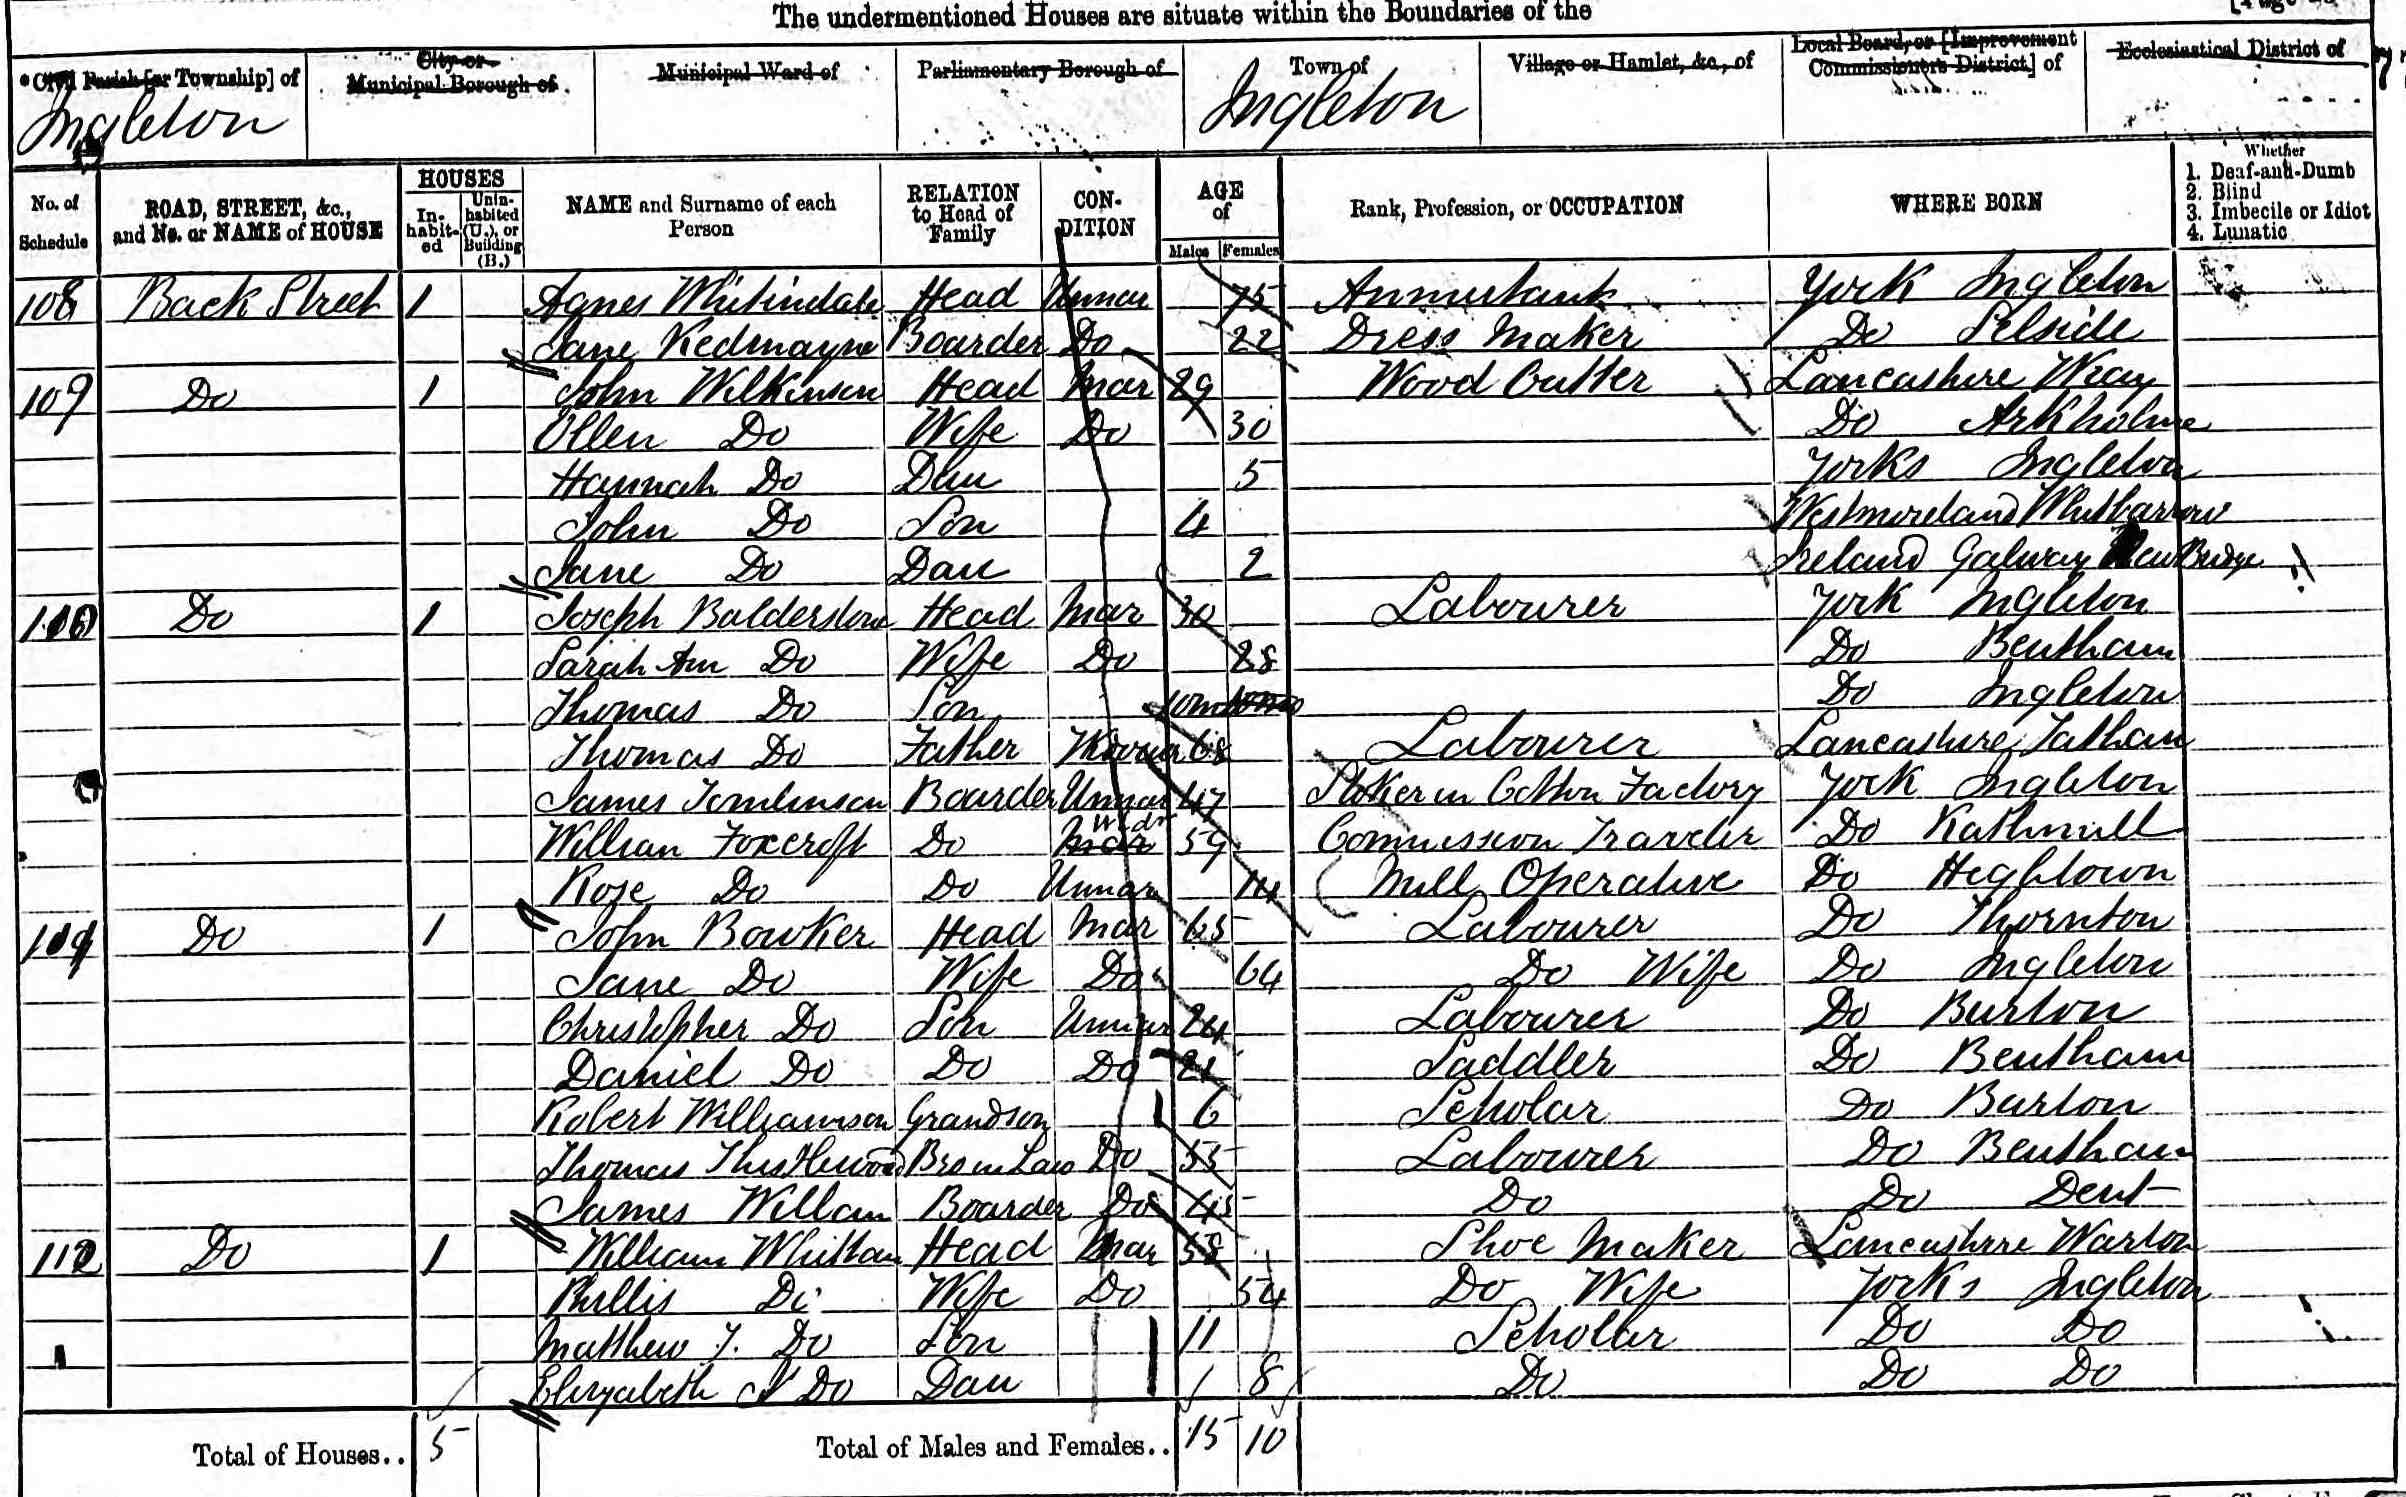 The undermentioned Houses are situate within the Boundaries of the
*Civil Parish [or Township] of
City or Municipal Borough of
Municipal Ward of
Parliamentary Borough of
Town of
Village or Hamlet, &c., of
Local Board, or [Improvement Commissioners District] of
Ecclesiastical District of
Ingleton Ingleton
No. of Schedule
ROAD, STREET, &c., and No. or NAME of HOUSE
HOUSES
In-habit-ed
Unin-habited (U.), or Building (B.)
NAME and Surname of each Person
RELATION to Head of Family
CON-DITION
AGE of
Males Females
Rank, Profession, or OCCUPATION
WHERE BORN
Whether
1. Deaf-and-Dumb
2. Blind
3. Imbecile or Idiot
4. Lunatic
108 Back Street 1 Agnes Head Unmar 75 York Ingleton
Jane Redmayne Boarder Do 22 Dress Maker Do Selside
109 Do 1 John Wilkinson Head Mar 29 Wood Cutter Lancashire Wray
Ellen Do Wife Do 30 Do Arkholme
Hannah Do Dau 5 Yorks Ingleton
John Do Son 4 Westmoreland Whitbarrow
Jane Do Dau 2 Ireland Galway New Bridge
110 Do 1 Joseph Balderstone Head Mar 30 Labourer York Ingleton
Sarah Ann Do Wife Do 28 Do Bentham
Thomas Do Son 10m Do Ingleton
Thomas Do Father 68 Labourer Lancashire Tatham
James Tomlinson Boarder Unmar 47 Stoker in Cotton Factory York Ingleton
William Foxcroft Do Mar Widr 59 Commission Traveler Do Rathmell
Rose Do Do Unmar 14 Mill Operative Do
111 Do 1 John Bowker Head Mar 65 Labourer Do Thornton
Jane Do Wife Do 64 Do Wife Do Ingleton
Christopher Do Son Unmar 24 Labourer Do Burton
Daniel Do Do Do 21 Saddler Do Bentham
Robert Williamson Grandson 6 Scholar Do Burton
Thomas Thistlewood Bro in Law Do 55 Labourer Do Bentham
James Willan Boarder Do 45 Do Do Dent
112 Do 1 William Whittam Head Mar 58 Shoe Maker Lancashire Warton
Phillis Do Wife Do 54 Do Wife Yorks Ingleton
Matthew J. Do Son 11 Scholar Do Do
Elizabeth A Do Dau 8 Do Do Do
Total of Houses.. 5 Total of Males and Females.. 15 10